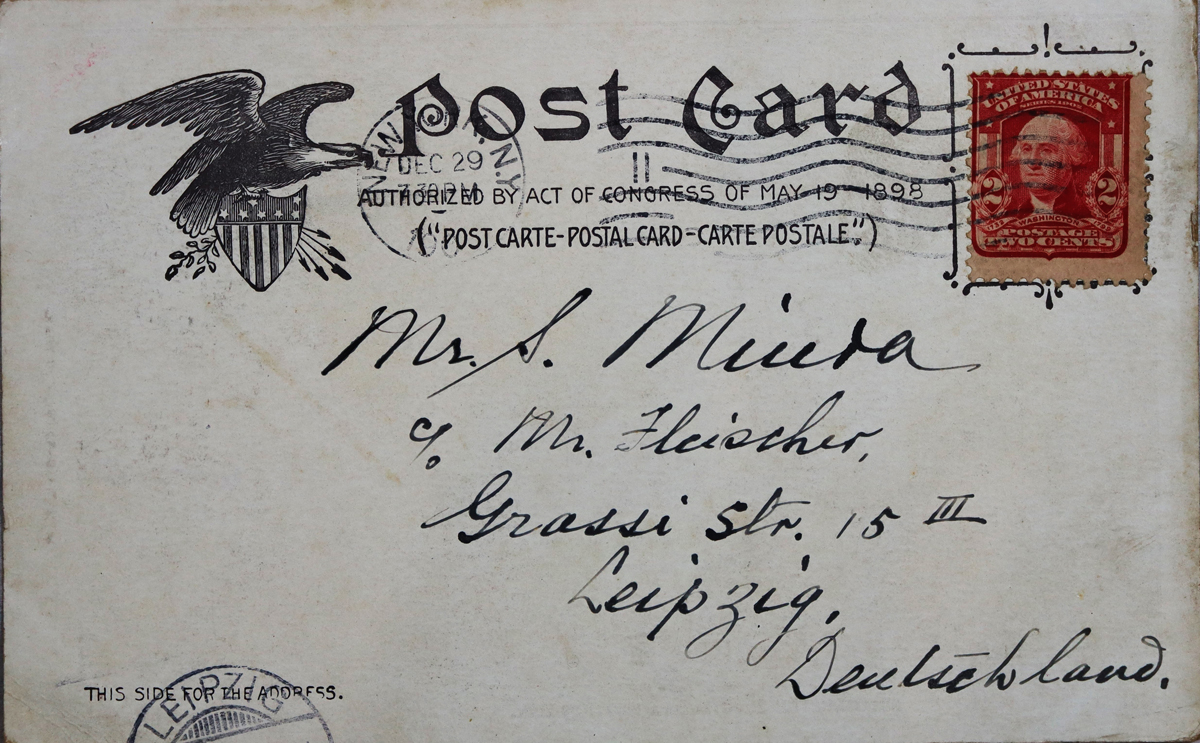 Post Card
NEW N.Y.
DEC 29
7 30 PM
AUTHORIZED BY ACT OF CONGRESS OF MAY 19 1898
("POST CARTE-POSTAL CARD-CARTE POSTALE".)
UNITED STATES
OF AMERICA
SERIES 1902
2 2
WASHINGTON
POSTAGE
TWO CENTS
Mr. S. Miura
c/o Mr. Fleischer,
Grassi Str. 15 III
Leipzig,
Deutschland.
THIS SIDE FOR THE ADDRESS.
LEIPZIG